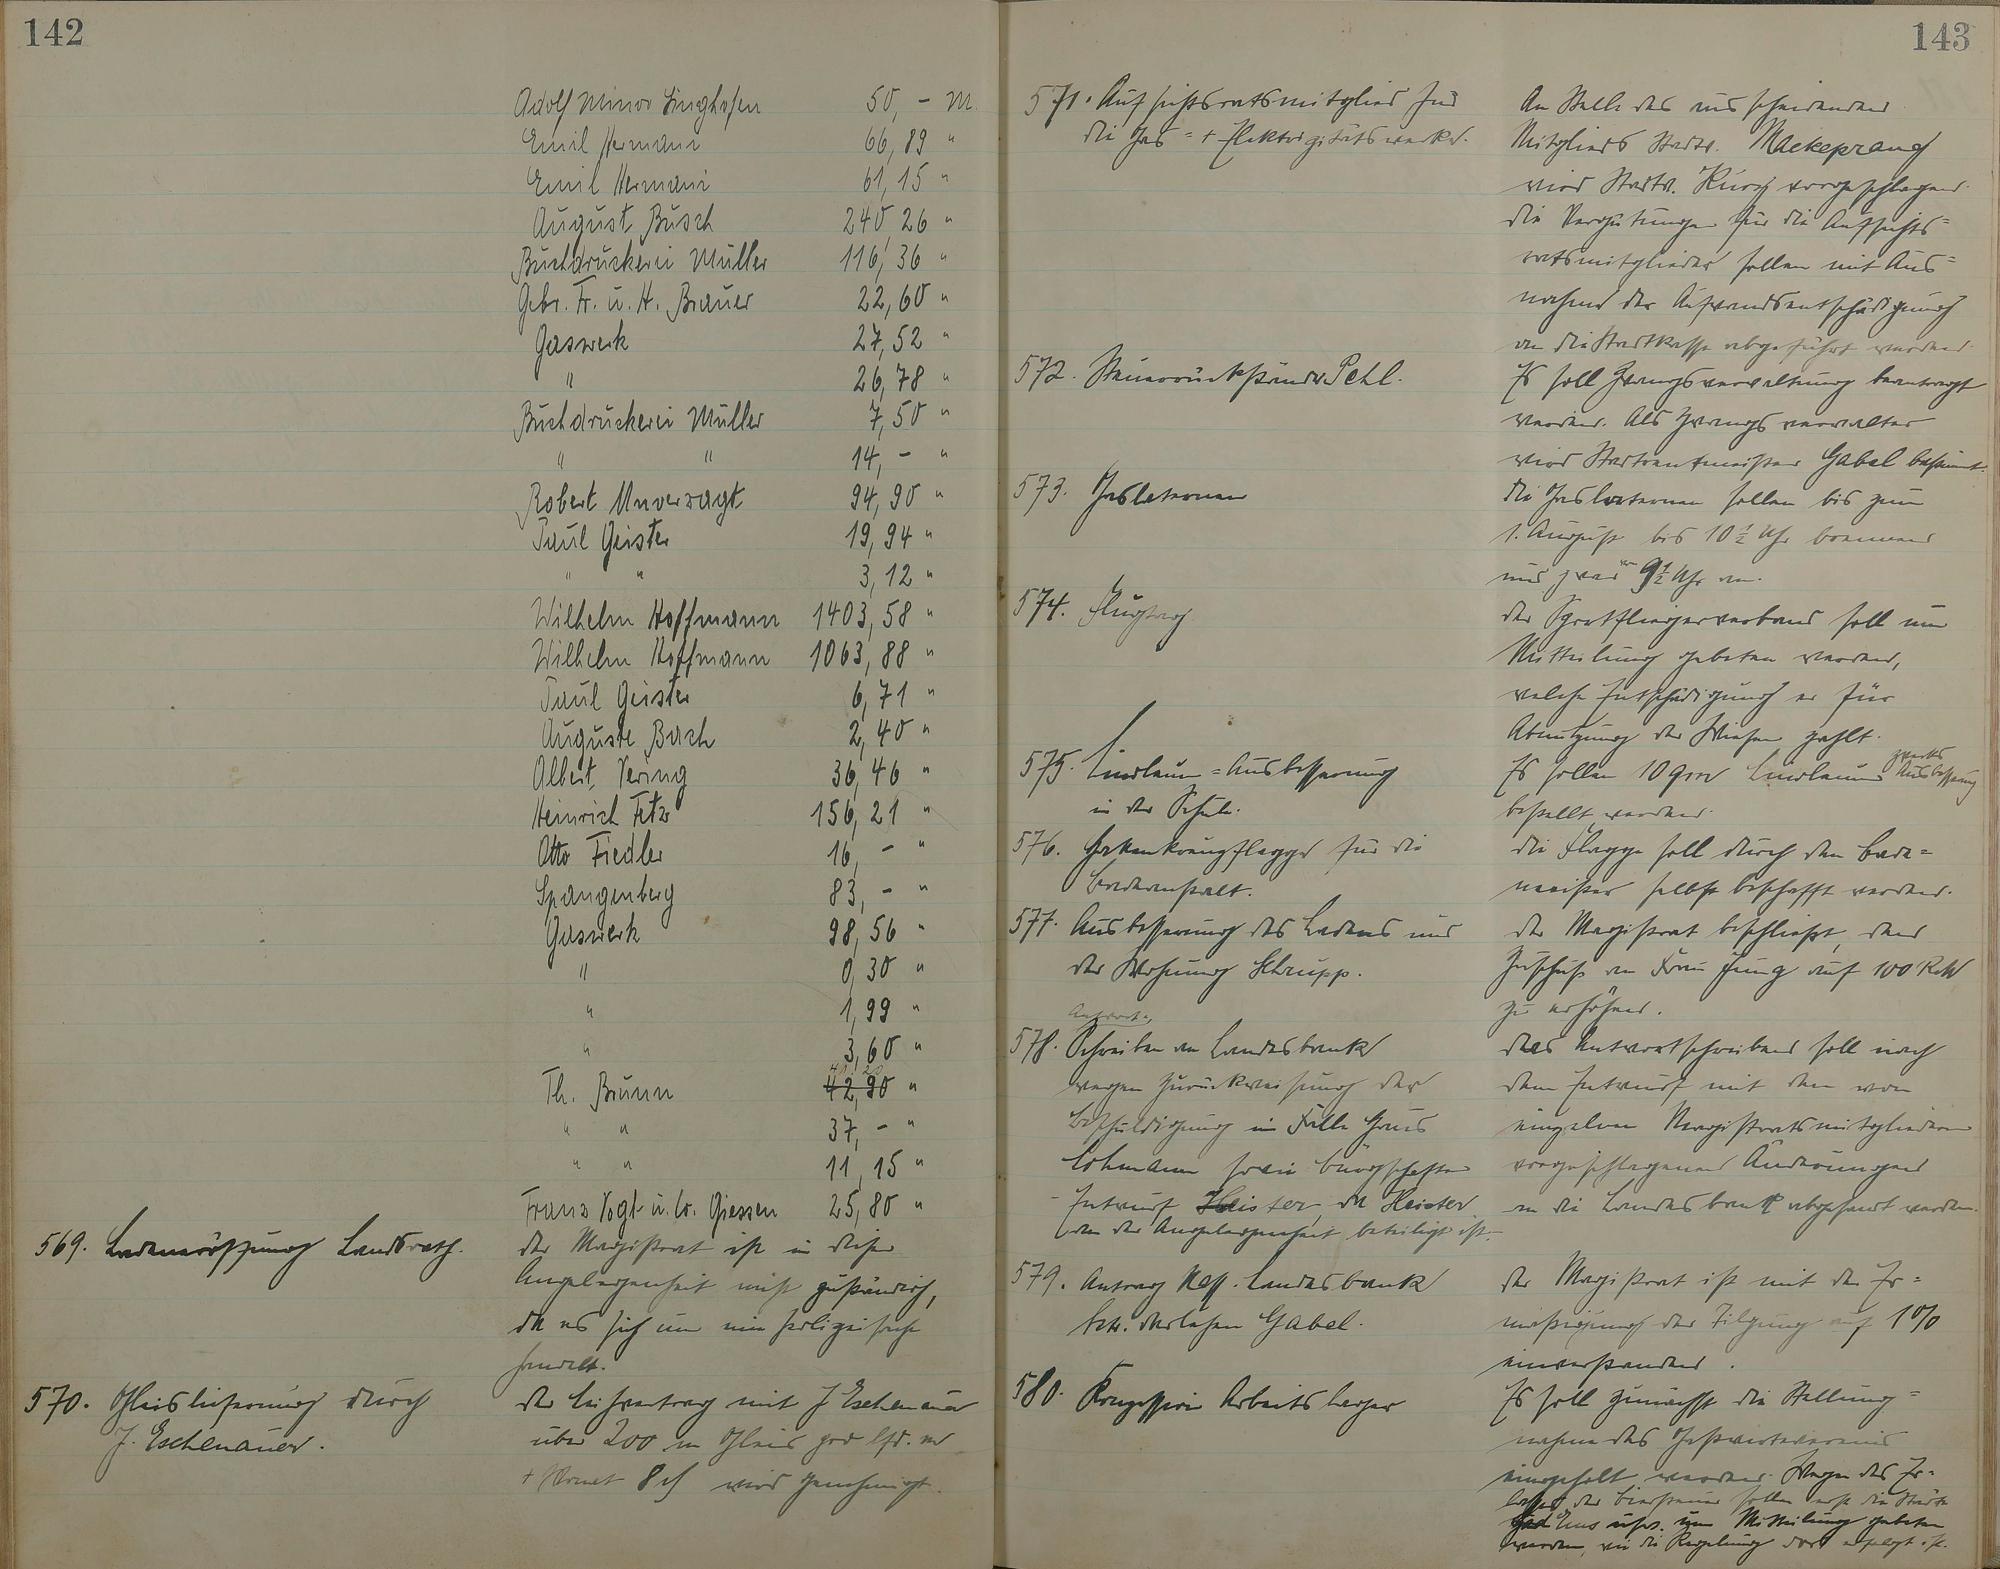 142
Adolf Minor Singhofen 50,- M.
Emil Hermani 66,89 "
Emil Hermani 61,15 "
August Busch 240,26 "
Buchdruckerei Müller 116,36 "
Gebr. Fr. u. H. Brauer 22,60 "
Gaswerk 27,52 "
" 26,78 "
Buchdruckerei Müller 7,50 "
" " 14,- "
Robert Unverzagt 94,90 "
Paul Geister 19,94 "
" " 3,12 "
Wilhelm Hoffmann 1403,58 "
Wilhelm Hoffmann 1063,88 "
Paul Geister 6,71 "
Auguste Bach 2,40 "
Albert Vering 36,46 "
Heinrich Fetz 156,21 "
Otto Fiedler 16,- "
Spangenberg 83,- "
Gaswerk 98,56 "
" 0,30 "
" 1,99 "
" 3,60 "
Th. Brunn 42,90 "
" " 37,- "
" " 11,15 "
Franz Vogt u. Co. Giessen 25,80 "
569. Ladeneröffnung Landsrath.
der Magistrat ist in dieser
Angelegenheit nicht zuständig,
da es sich um eine Polizeisache
handelt.
570. Gleislieferung durch
J. Eschenauer.
der Leihvertrag mit J Eschenauer
über 200 m Gleis pro lfd. m
+ Monat 8 wird genehmigt.
143
571. Aufsichtsratsmitglied für
die Gas- + Elektrizitätswerke.
An Stelle des ausscheidenden
Mitglieds Stadtv. Mackeprang
wird Stadtv. Kurz vorgeschlagen.
die Vergütungen für die Aufsichts=
ratsmitglieder sollen mit Aus=
nahme der Aufwandsentschädigung
an die Stadtkasse abgeführt werden.
572. Steuerrückstände Pehl.
Es soll Zwangsverwaltung beantragt
werden. Als Zwangsverwalter
wird Stadtrentmeister Gabel bestimmt.
573. Gaslaternen
die Gaslaternen sollen bis zum
1. August bis 10 ½ Uhr brennen
und zwar von 9½ Uhr an.
574. Flugtag
der Sportfliegerverband soll um
Mitteilung gebeten werden,
welche Entschädigung er für
Abnutzung der Wiesen zahlt.
575. Linoleum=Ausbesserung
in der Schule.
Es sollen 10 qm Linoleum zwecks Ausbesserung
bestellt werden.
576. Hakenkreuzflagge für die
Badeanstalt.
die Flagge soll durch den Bade=
meister selbst beschafft werden.
577. Ausbesserung des Ladens und
der Wohnung Strupp.
der Magistrat beschließt, den
Zuschuß an Frau Jung auf 100 RM
zu erhöhen.
578. Antwort-
Schreiben an Landesbank
wegen Zurückweisung der
Beschuldigung im Falle
Lohmann sowie Bürgschaften
Entwurf Heister, da Heister
an der Angelegenheit beteiligt ist.
das Antwortschreiben soll nach
dem Entwurf mit den von
einzelnen Magistratsmitgliedern
vorgeschlagenen Änderungen
an die Landesbank abgesandt werden.
579. Antrag Nass. Landesbank
betr. darlehen Gabel.
der Magistrat ist mit der Er=
mäßigung der Tilgung auf 1%
einverstanden.
580. Konzession Arbeitslager
Es soll zunächst die Stellung=
nahme des Gastwirtevereins
eingeholt werden. Wegen des Er=
lasses der Biersteuer sollen erst die Städte
Bad Ems usw. um Mitteilung gebeten
werden, wie die Regelung dort erfolgt ist.